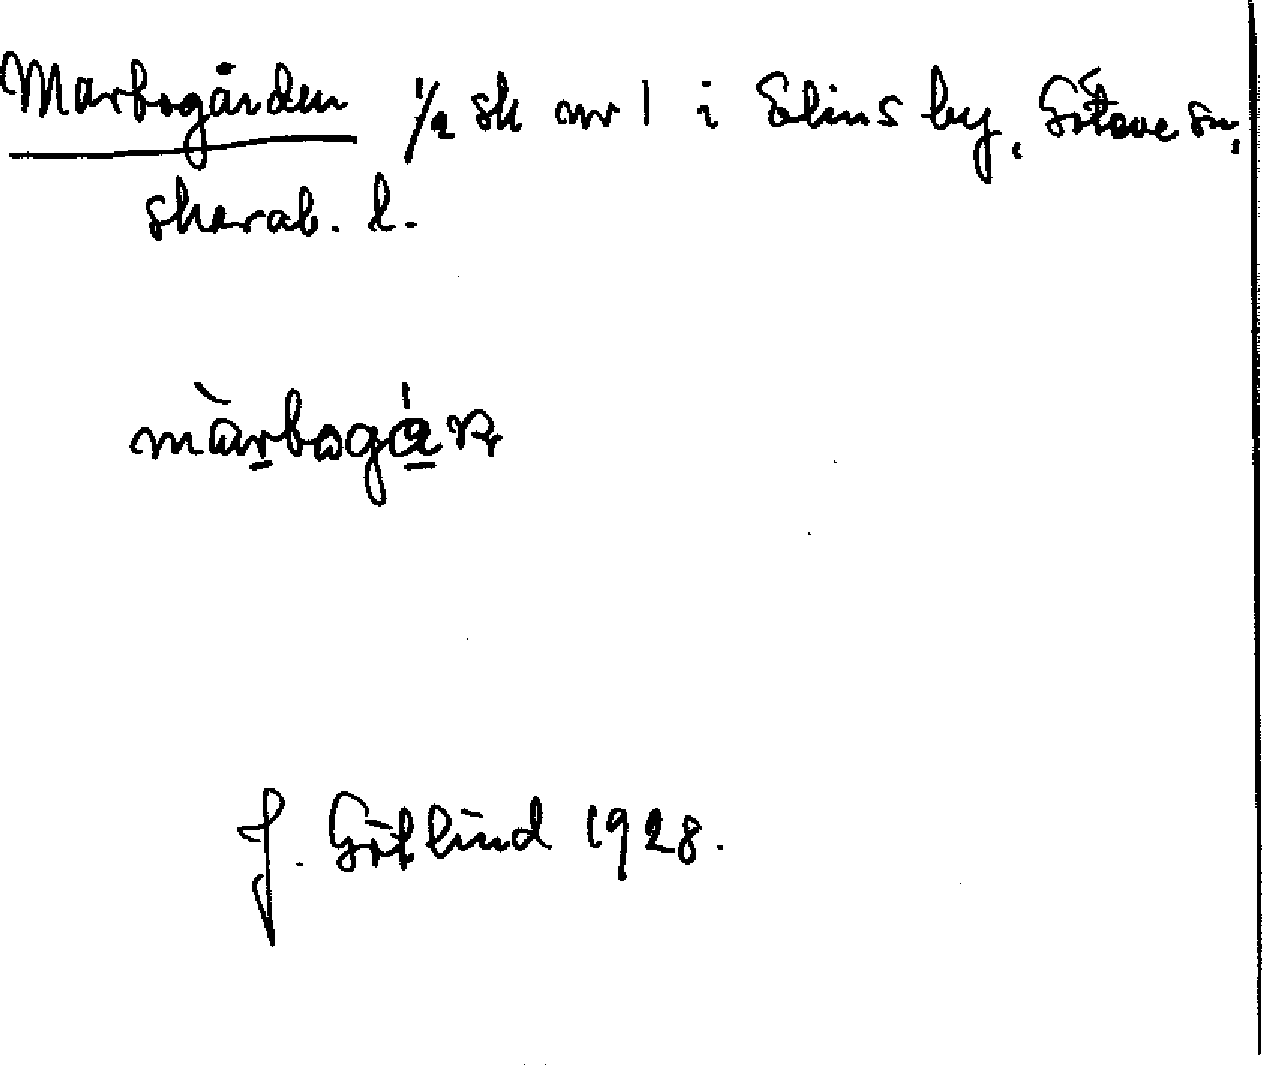 Marbogården 1/2 sk nr 1 i Elins by, Göteve sn,
skarab. l.
màrbogár
J. Götlind 1928.